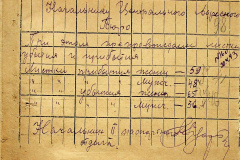 Начальнику Центрального Адресного
Бюро
При этом препровождаем листки
убытия и прибытия
Листки прибытия женск — 59
" " мужс — 48
" убытия женс — 65
" " Мужс — 36
Начальник
отдела